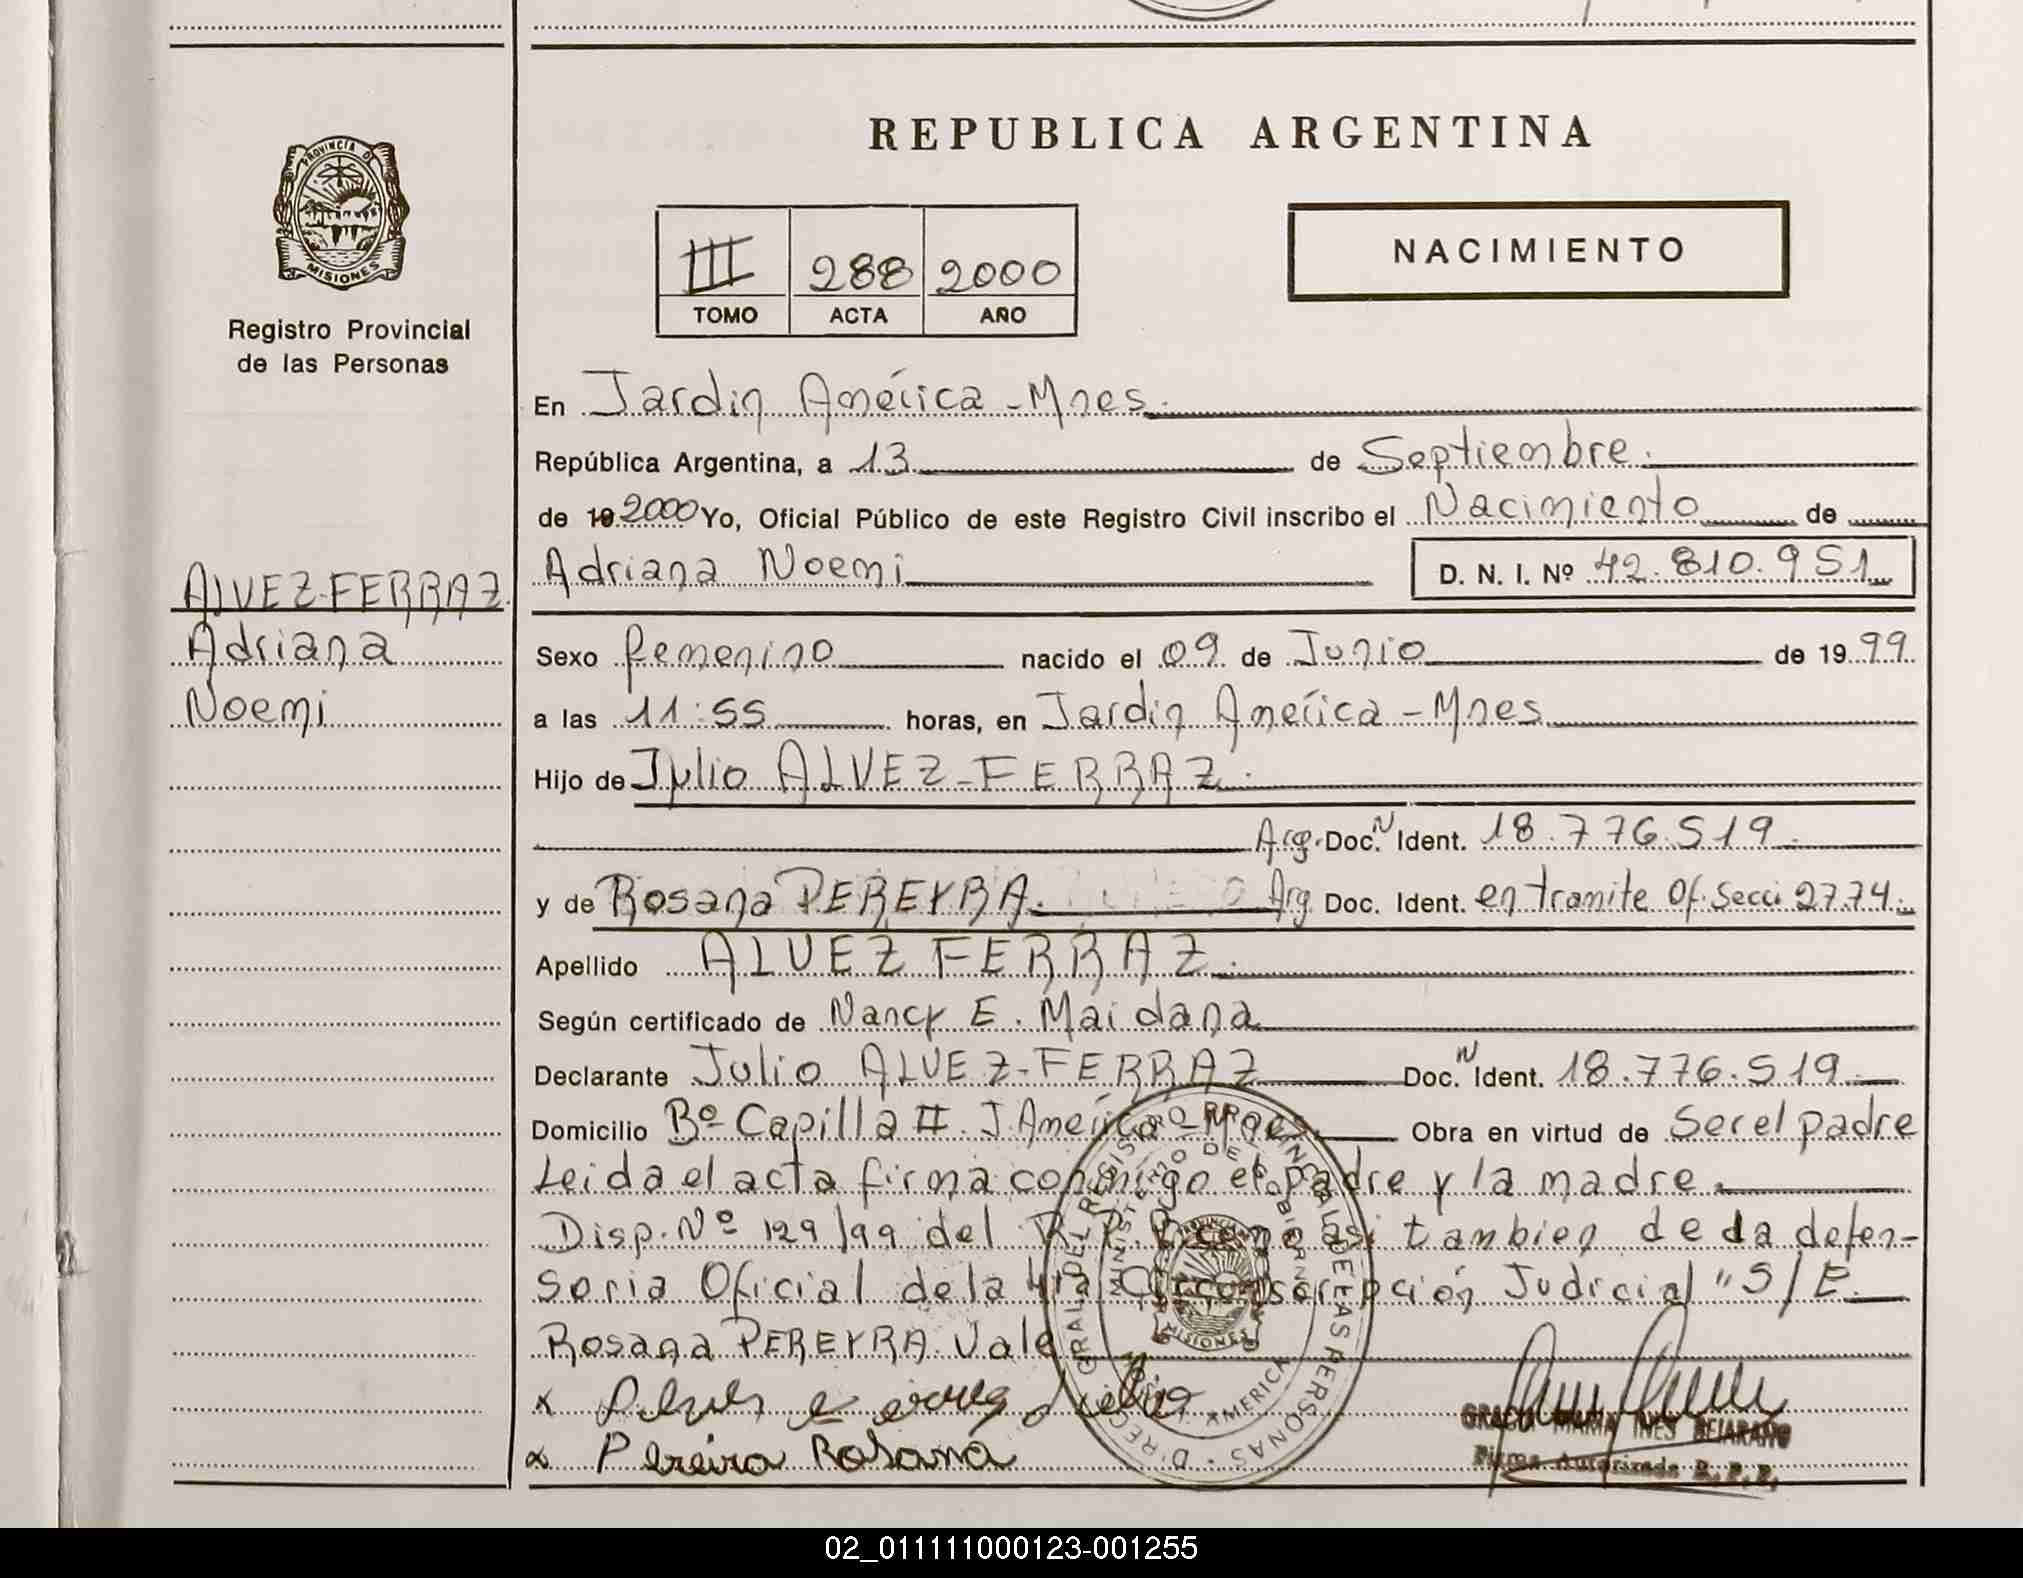 REPUBLICA ARGENTINA
PROVINCIA D
MISIONES
Registro Provincial
de las Personas
III 288 2000
TOMO ACTA AÑO
NACIMIENTO
En Jardin América - Mnes.
República Argentina, a 13 de Septiembre.
de 19 2000 Yo, Oficial Público de este Registro Civil inscribo el Nacimiento de
Adriana Noemi D. N. I. Nº 42.810.951
ALVEZ-FERRAZ
Adriana
Noemi
Sexo femenino nacido el 09 de Junio de 1999
a las 11:55 horas, en Jardin América - Mnes
Hijo de Julio ALVEZ-FERRAZ.
Arg. Doc. N Ident. 18.776.519.
y de Rosana PEREYRA. Arg Doc. Ident. en tramite Of. Secci 2774.
Apellido ALVEZ FERRAZ.
Según certificado de Nancy E. Maidana
Declarante Julio ALVEZ-FERRAZ Doc. N Ident. 18.776.519.
Domicilio Bº Capilla II. J. América - Mnes. Obra en virtud de Ser el padre
Leida el acta firma conmigo el padre y la madre.
Disp. Nº 129/99 del R. P. P. como asi tambien de da defen-
soria Oficial de la 4ta Circonscripción Judicial "S/E.
Rosana PEREYRA. Vale
x
x Pereira Rosana
DIRECC GRAL DEL REGISTRO PROVINCIAL DE LAS PERSONAS
MINISTERIO DE GOBIERNO
AMERICA
MISIONES
MARIA INES BEJARANO
Firma Autorizada R. P. P.
02_011111000123-001255